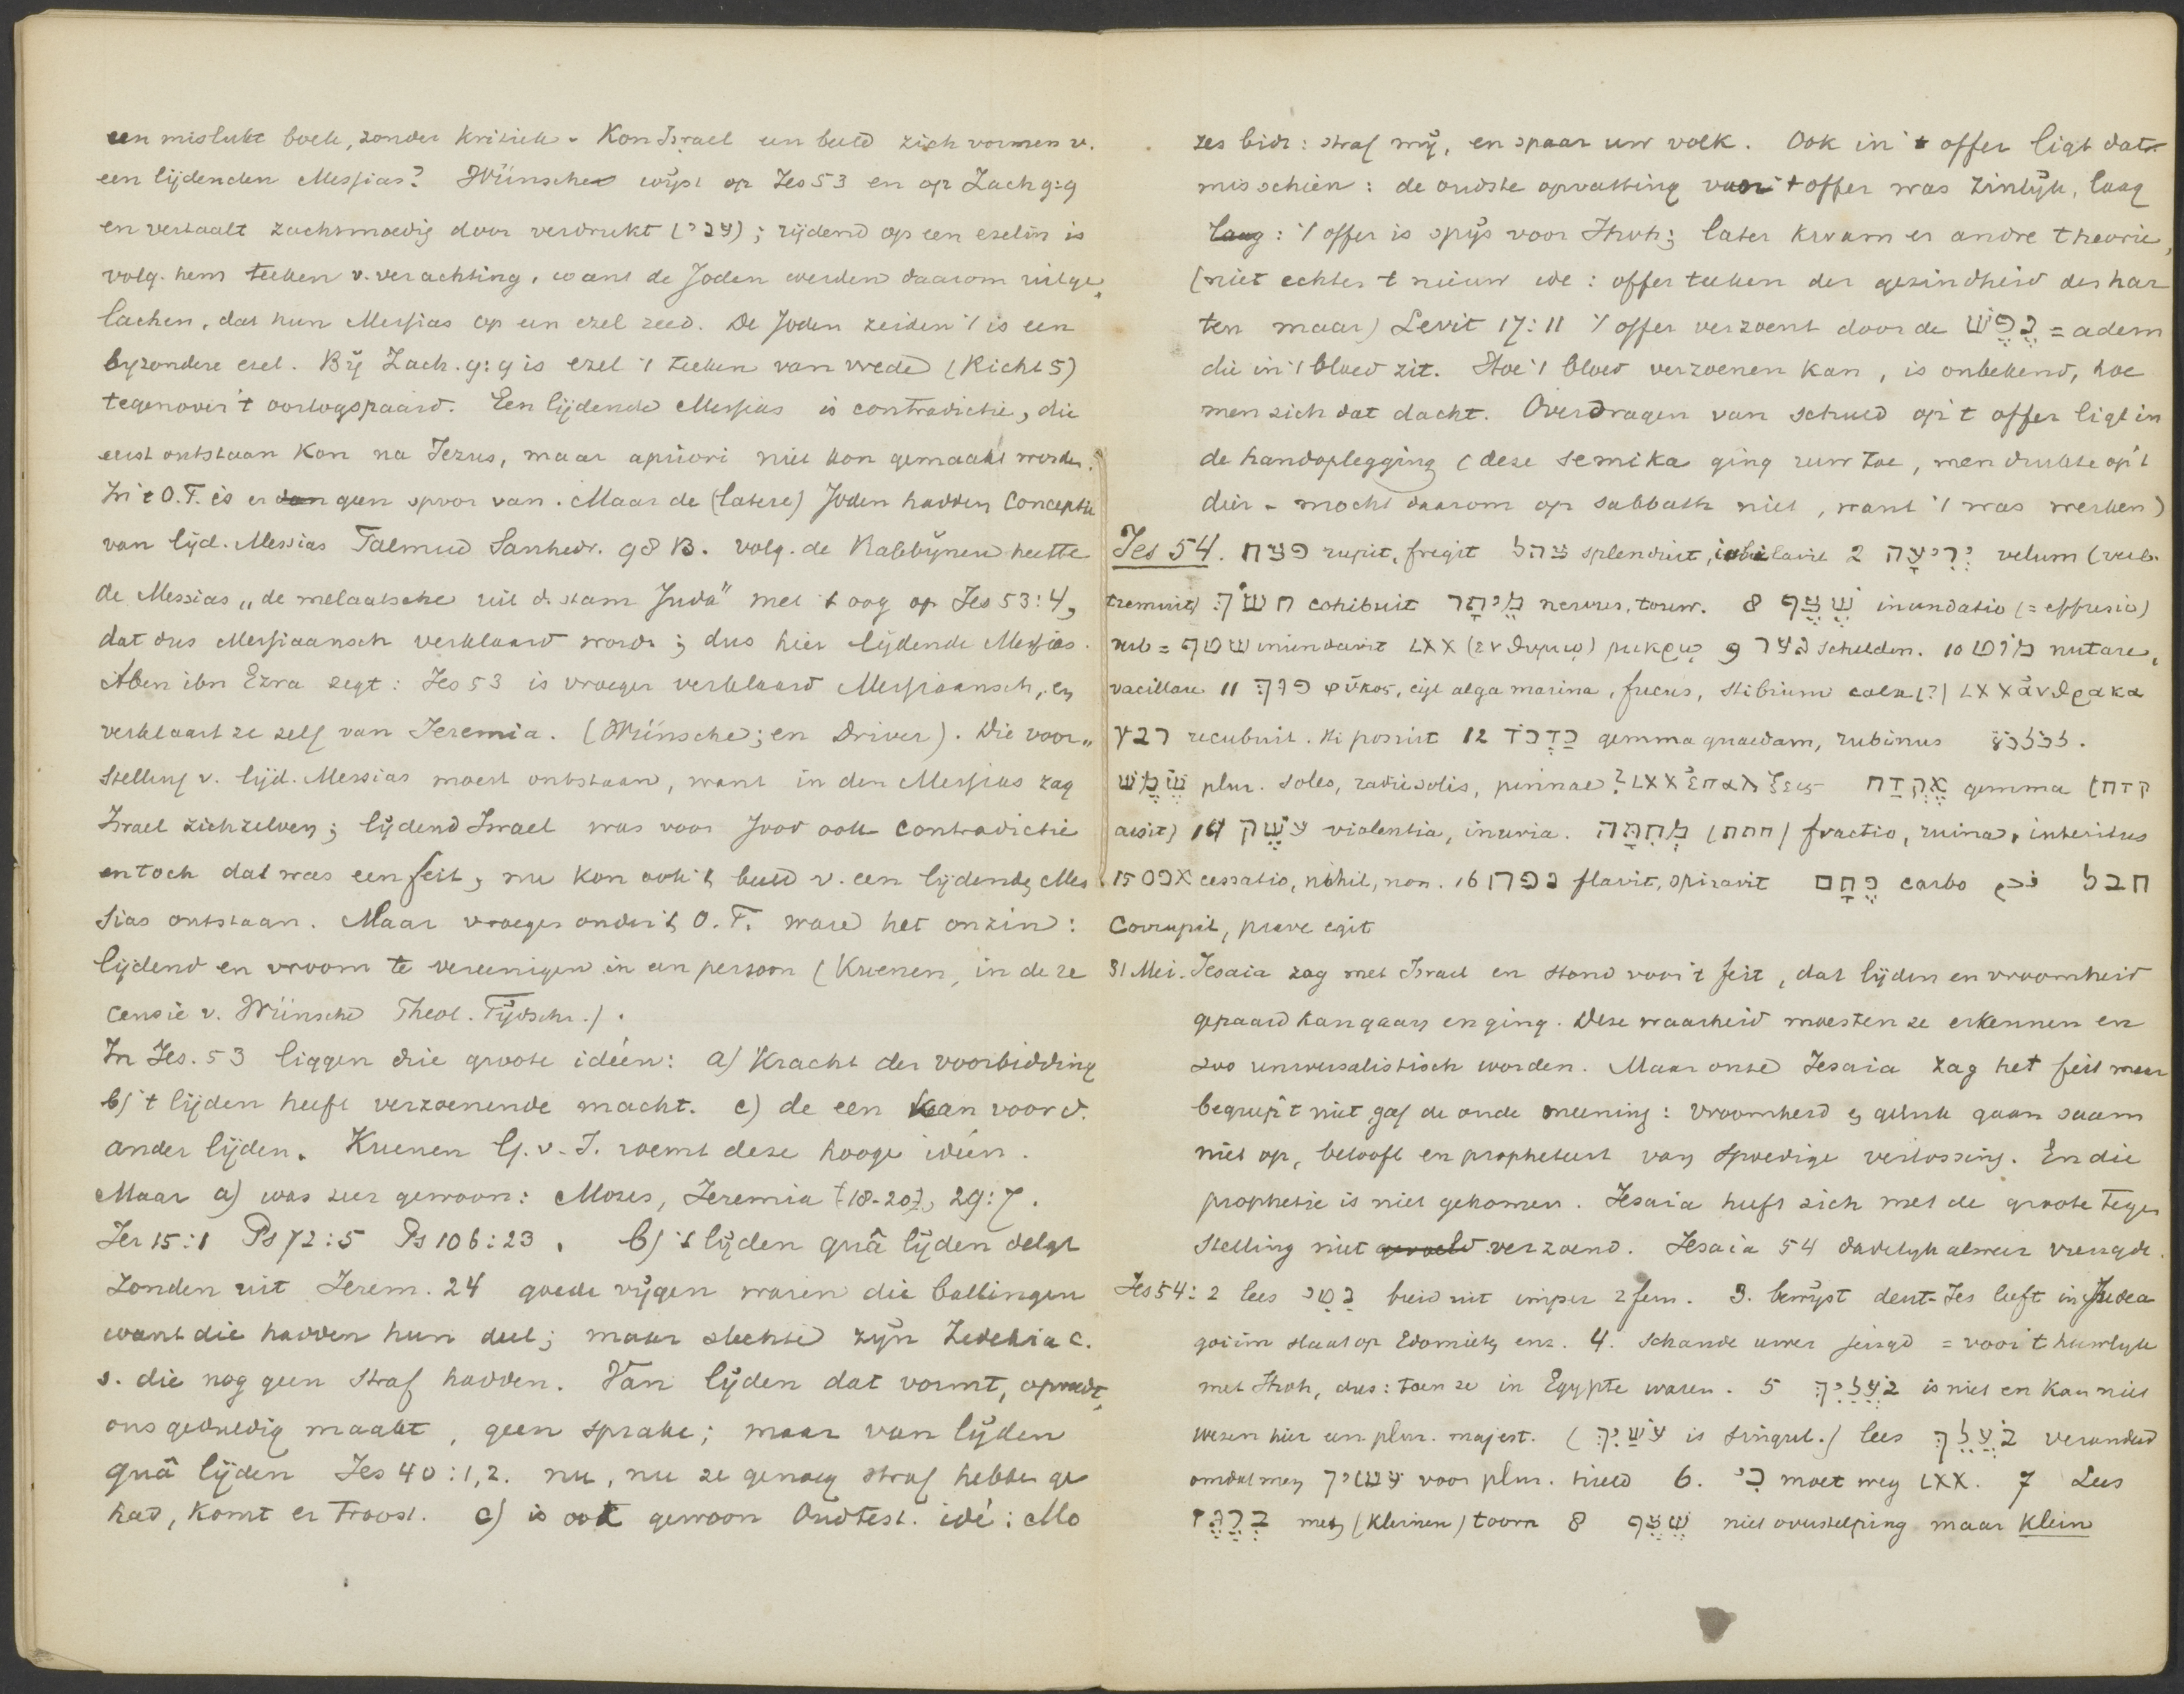 een mislukt boek, zonder kritiek. Kon Israel een beeld zich vormen v.
een lijdenden Messias? Wünsche wijst op Jes 53 en op Zach 9:9
en vertaalt zachtmoedig door verdrukt (עני); rijdend op een ezelin is
volg. hem teeken v. verachting, want de Joden werden daarom uitge„
lachen, dat hun Messias op een ezel reed. De Joden zeiden 't is een
byzondere ezel. Bij Zach. 9:9 is ezel 't teeken van vrede (Richt 5)
tegenover 't oorlogspaard. Een lijdende Messias is contradictie, die
eerst ontstaan kon na Jezus, maar apriori niet kon gemaakt worden.
In 't O.T. is er dan geen spoor van. Maar de (latere) Joden hadden Conceptie
van lijd. Messias Talmud Sanhedr. 98 B. volg. de Rabbijnen heette
de Messias „de melaatsche uit d. stam Juda" met 't oog op Jes 53:4,
dat dus Messiaansch verklaard wordt; dus hier lijdende Messias.
Aben ibn Ezra zegt: Jes 53 is vroeger verklaard Messiaansch, en
verklaart ze zelf van Jeremia. (Wünsche; en Driver). Die voor„
stelling v. lijd. Messias moest ontstaan, want in den Messias zag
Israel zichzelven; lijdend Israel was voor Jood ook contradictie
en toch dat was een feit, nu kon ook 't beeld v. een lijdende Mes
sias ontstaan. Maar vroeger onder 't O.T. ware het onzin:
lijdend en vroom te vereenigen in een persoon (Kuenen, in de re
censie v. Wünsche Theol. Tijdschr.).
In Jes. 53 liggen drie groote ideén: a) Kracht der voorbidding
b) 't lijden heeft verzoenende macht. c) de een kan voor d.
ander lijden. Kuenen G. v. I. roemt deze hooge ideén.
Maar a) was zeer gewoon: Mozes, Jeremia (18-20), 29:7.
Jer 15:1 Ps 72:5 Ps 106:23. b) 't lijden quâ lijden delgt
zonden uit Jerem. 24 goede vijgen waren die ballingen
want die hadden hun deel; maar slechte zijn Zedekia c.
s. die nog geen straf hadden. Van lijden dat vormt, opvoedt,
ons geduldig maakt, geen sprake; maar van lijden
quâ lijden Jes 40:1,2. nu, nu ze genoeg straf hebben ge
had, komt er troost. c) is ook gewoon Oudtest. idé: Mo
zes bidt: straf mij, en spaar uw volk. Ook in 't offer ligt dat
misschien: de oudste opvatting van 't offer was zinlijk, laag
laag: 't offer is spijs voor Jhvh; later kwam er andre theorie,
(niet echter 't nieuw idé: offer teeken der gezindheid des har
ten maar) Levit 17:11 't offer verzoent door de נֶפֶשׁ = adem
die in 't bloed zit. Hoe 't bloed verzoenen kan, is onbekend, hoe
men zich dat dacht. Overdragen van schuld op 't offer ligt in
de handoplegging (deze semika ging ruw toe, men drukte op 't
dier - mocht daarom op sabbath niet, want 't was werken)
Jes 54. פצח rupit, fregit צהל splenduit, iubilavit 2 יְרִיעָה velum (verb.
tremuit) חשׂךְ cohibuit מֵיתָר nervus, touw. 8 שֶׁצֶף inundatio (= effusio)
verb = שטף inundavit LXX (ἐν θυμῷ) μικρῷ 9 גער schelden. 10 מוֹט nutare,
vacillare 11 פּוּךְ φῦκος, eigl alga marina, fucus, stibium LXX ἄνθρακα
רבץ recubuit. Hi posuit 12 כַּדְכֹּד gemma quaedam, rubinus
שֶׁמֶשׁ plur. soles, radii solis, pinnae LXX ἐπάλξεις אֶקְדַּח gemma (קדח
arsit) 14 עֹשֶׁק violentia, inuria. מְחִתָּה (חתת) fractio, ruina, interitus
15 אפס cessatio, nihil, non. 16 נפח flavit, spiravit פֶּחָם carbo חבל
corrupit, prave egit
31 Mei. Jesaia zag met Israel en stond voor 't feit, dat lijden en vroomheid
gepaard kan gaan en ging. Deze waarheid moesten ze erkennen en
zoo universalistisch worden. Maar onze Jesaia zag het feit maar
begreep 't niet gaf de oude meening: vroomheid en geluk gaan saam
niet op, belooft en propheteert van spoedige verlossing. En die
prophetie is niet gekomen. Jesaia heeft zich met de groote tegen
stelling niet verzoend. Jesaia 54 dadelijk alweer vreugde.
Jes 54: 2 lees נְטִי breid uit imper 2 fem. 3. bewijst deut-Jes leeft in Judea
goiim slaat op Edomieten enz. 4. Schande uwer jeugd = voor 't huwlijk
met Jhvh, dus: toen ze in Egypte waren. 5 בֹּעֲלַיִךְ is niet en kan niet
wezen hier een plur. majest. (עֹשַׂיִךְ is singul.) lees בֹּעֲלֵךְ veranderd
omdat men עשיך voor plur. hield 6. כִּי moet weg LXX. 7 Lees
בְּרֶגַז met (kleinen) toorn 8 שֶׁצֶף niet overstelping maar klein